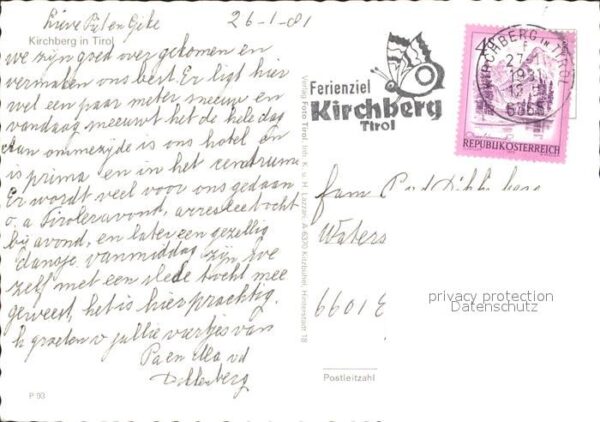 26-1-81
Kirchberg in Tirol
we zijn goed over gekomen en
vermaken ons best. Er ligt hier
wel een paar meter sneeuw en
vandaag sneeuwt het de hele dag
ons hotel
is prima en in het centrum
Er wordt veel voor ons gedaan
o.a Tiroleravond, arresleetocht
bij avond, en later een gezellig
dansje. vanmiddag zijn we
zelf met een slede tocht mee
geweest, het is hier prachtig.
groeten v jullie
Pa en Ma vd
Verlag Foto Tirol, Inh. K. u. H. Lazzeri, A-6370 Kitzbühel, Hinterstadt 18
P 93
Ferienziel
Kirchberg
Tirol
KIRCHBERG in TIROL
1981
6365
REPUBLIK ÖSTERREICH
Fam.
Waters
6601 E
privacy protection
Datenschutz
Postleitzahl